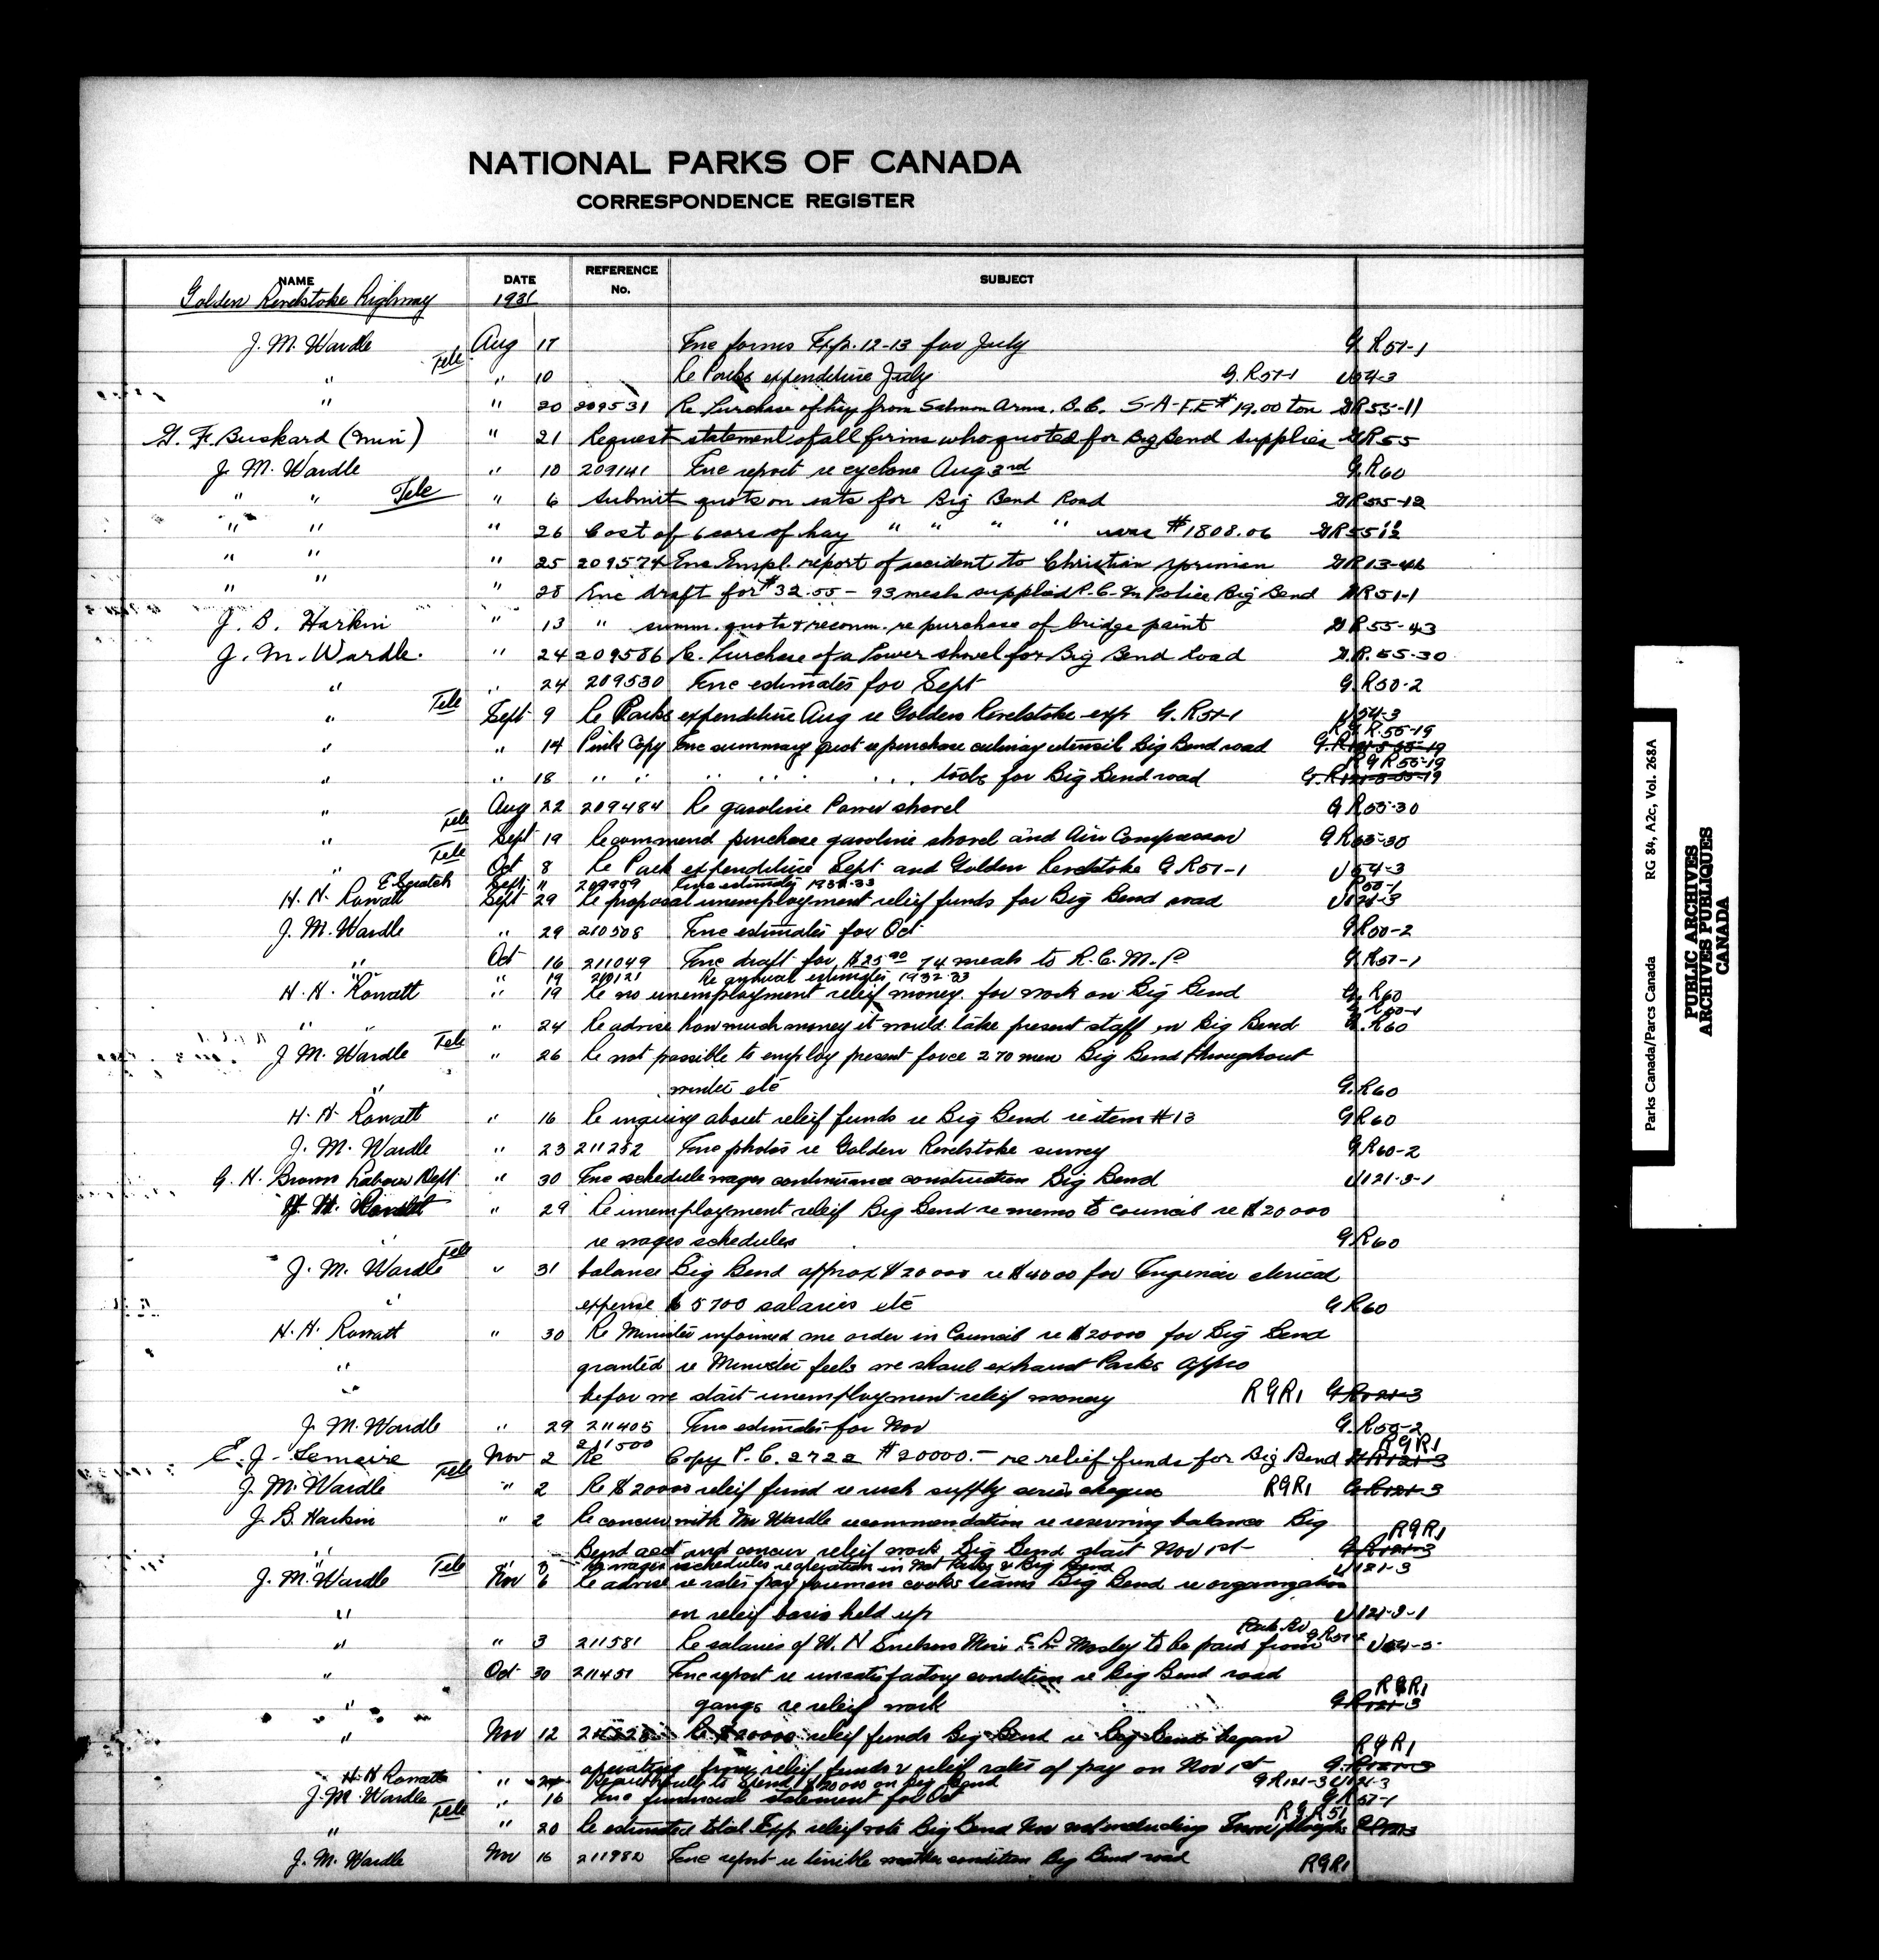 NATIONAL PARKS OF CANADA
CORRESPONDENCE REGISTER
NAME DATE REFERENCE No. SUBJECT
Golden Revelstoke Highway 1931
J. M. Wardle Aug 17 Enc forms Exp. 12-13 for July G.R51-1
" Tele " 10 Re Parks expenditure July G.R51-1 U54-3
" " 20 209531 Re Purchase of hay from Salmon Arm. B.C. S-A-F.E $19.00 ton GR55-11
G. F. Buskard (min) " 21 Request statement of all firms who quoted for Big Bend supplies GR55
J. M. Wardle " 10 209141 Enc report re cyclone Aug 3rd G.R60
" " Tele " 6 Submit quots on oats for Big Bend Road GR55-12
" " " 26 Cost of 6 cars of hay " " " " was $1808.06 GR55
" " " 25 209574 Enc Empl. report of accident to Christian GR13-
" " " 28 Enc draft for $32.55 - 93 meals supplied R.C.M Police Big Bend GR51-1
J. B. Harkin " 13 " summ. quots & recomm. re purchase of bridge paint G.R55-43
J. M. Wardle. " 24 209586 Re. Purchase of a Power shovel for Big Bend Road G.R.55-30
" " 24 209530 Enc estimates for Sept G.R50-2
" Tele Sept 9 Re Parks expenditure Aug re Golden Revelstoke exp G.R51-1 U54-3
" " 14 Pink Copy Enc summary quot re purchase culinary utensil Big Bend road RGR.55-19
" " 18 " " " " " tools for Big Bend road RGR55-19
" Aug 22 209484 Re gasoline Power shovel GR55-30
" Tele Sept 19 Recommend purchase gasoline shovel and Air Compressor GR55-30
" Tele Oct 8 Re Park expenditure Sept and Golden Revelstoke GR51-1 U54-3
E Scratch Sept " 209959 Enc estimates 1932-33 R50-1
H. H. Rowatt Sept 29 Re proposal unemployment relief funds for Big Bend road U121-3
J. M. Wardle " 29 210508 Enc estimates for Oct GR50-2
" Oct 16 211049 Enc draft for $25.90 74 meals to R.C.M.P G.R51-1
" " 19 Re annual estimates 1932-33
H. H. Rowatt " 19 Re no unemployment relief money for work on Big Bend G.R60
" " " 24 Re advise how much money it would take present staff on Big Bend G.R60
J. M. Wardle Tele " 26 Re not possible to employ present force 270 men Big Bend throughout
" winter etc G.R60
H. H. Rowatt " 16 Re inquiry about relief funds re Big Bend re item #13 GR60
J. M. Wardle " 23 211252 Enc photos re Golden Revelstoke survey GR60-2
G. H. Brown Labour Dept " 30 Enc schedule wages continuance construction Big Bend U121-3-1
H. H. Rowatt " 29 Re unemployment relief Big Bend re memo to council re $20000
" re wages schedules GR60
J. M. Wardle Tele " 31 balance Big Bend approx $20000 re $4000 for Engineer clerical
" expense $5700 salaries etc GR60
H. H. Rowatt " 30 Re Minister informed me order in Council re $20000 for Big Bend
" granted re Minister feels we shoul exhaust Parks Appro
" befor we start unemployment relief money RGR1 GR121-3
J. M. Wardle " 29 211405 Enc estimates for Nov G.R50-2
E. J. Lemaire Nov 2 211500 Re Copy P.C. 2722 $20000.- re relief funds for Big Bend RGR1 GR121-3
J. M. Wardle Tele " 2 Re $20000 relief fund re rush supply series cheques RGR1 GR121-3
J. B. Harkin " 2 Re concur with Mr Wardle recommendation re reserving balance Big
" Bend acct and concur relief work Big Bend start Nov 1st RGR1 GR121-3
" 3 Re wages schedules re operation in Nat Parks & Big Bend U121-3
J. M. Wardle Tele Nov 6 Re advise re rates pay foremen cooks teams Big Bend re organization
" on relief basis held up U121-3-1
" " 3 211581 Re salaries of W. N Mosley to be paid from
" Oct 30 211451 Enc report re unsatisfactory condition re Big Bend road
" gangs re relief work RGR1 GR121-3
" Nov 12 Re $20000 relief funds Big Bend re Big Bend began
operating from relief funds & relief rates of pay on Nov 1st RGR1 G.R121-3
H. H Rowatt " 24 to spend $20000 on Big Bend GR121-3 U121-3
J. M. Wardle " 16 Enc financial statement for Oct GR51-1
" Tele " 20 Re estimated total Exp relief vote Big Bend Nov not including RGR51
J. M. Wardle Nov 16 211982 Enc report re terrible weather condition Big Bend road RGR1
Parks Canada/Parcs Canada RG 84, A2c, Vol. 268A
PUBLIC ARCHIVES
ARCHIVES PUBLIQUES
CANADA